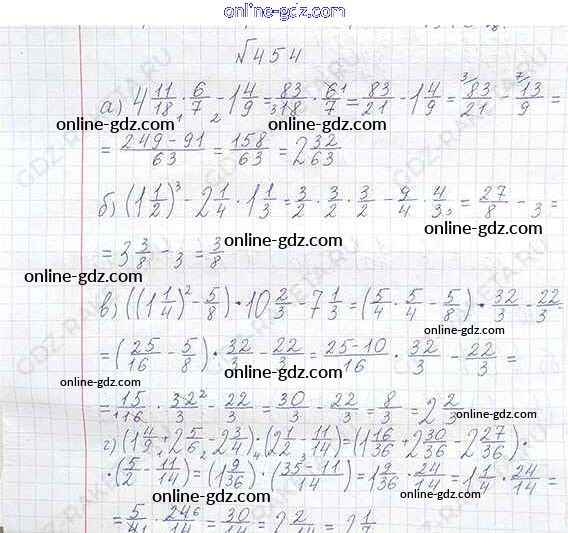 online-gdz.com
№454
а) 4 11/18 · 6/7 - 1 4/9 = 83/18 · 6/7 = 83/21 - 1 4/9 = 83/21 - 13/9 =
online-gdz.com online-gdz.com
= 249-91/63 = 158/63 = 2 32/63
online-gdz.com
б) (1 1/2)³ - 2 1/4 · 1 1/3 = 3/2 · 3/2 · 3/2 - 9/4 · 4/3 = 27/8 - 3 =
online-gdz.com online-gdz.com
= 3 3/8 - 3 = 3/8
online-gdz.com
online-gdz.com
в) ((1 1/4)² - 5/8) · 10 2/3 - 7 1/3 = (5/4 · 5/4 - 5/8) · 32/3 - 22/3
online-gdz.com online-gdz.com
= (25/16 - 5/8) · 32/3 - 22/3 = 25-10/16 · 32/3 - 22/3 =
online-gdz.com online-gdz.com
= 15/16 · 32/3 - 22/3 = 30/3 - 22/3 = 8/3 = 2 2/3
online-gdz.com
г) (1 4/9 + 2 5/6 - 2 3/4) · (2 1/2 - 11/14) = (1 16/36 + 2 30/36 - 2 27/36) ·
online-gdz.com online-gdz.com
· (5/2 - 11/14) = (1 9/36) · (35-11/14) = 1 9/36 · 24/14 = 1 1/4 · 24/14 =
online-gdz.com online-gdz.com
= 5/4 · 24/14 = 30/14 = 2 2/14 = 2 1/7
online-gdz.com